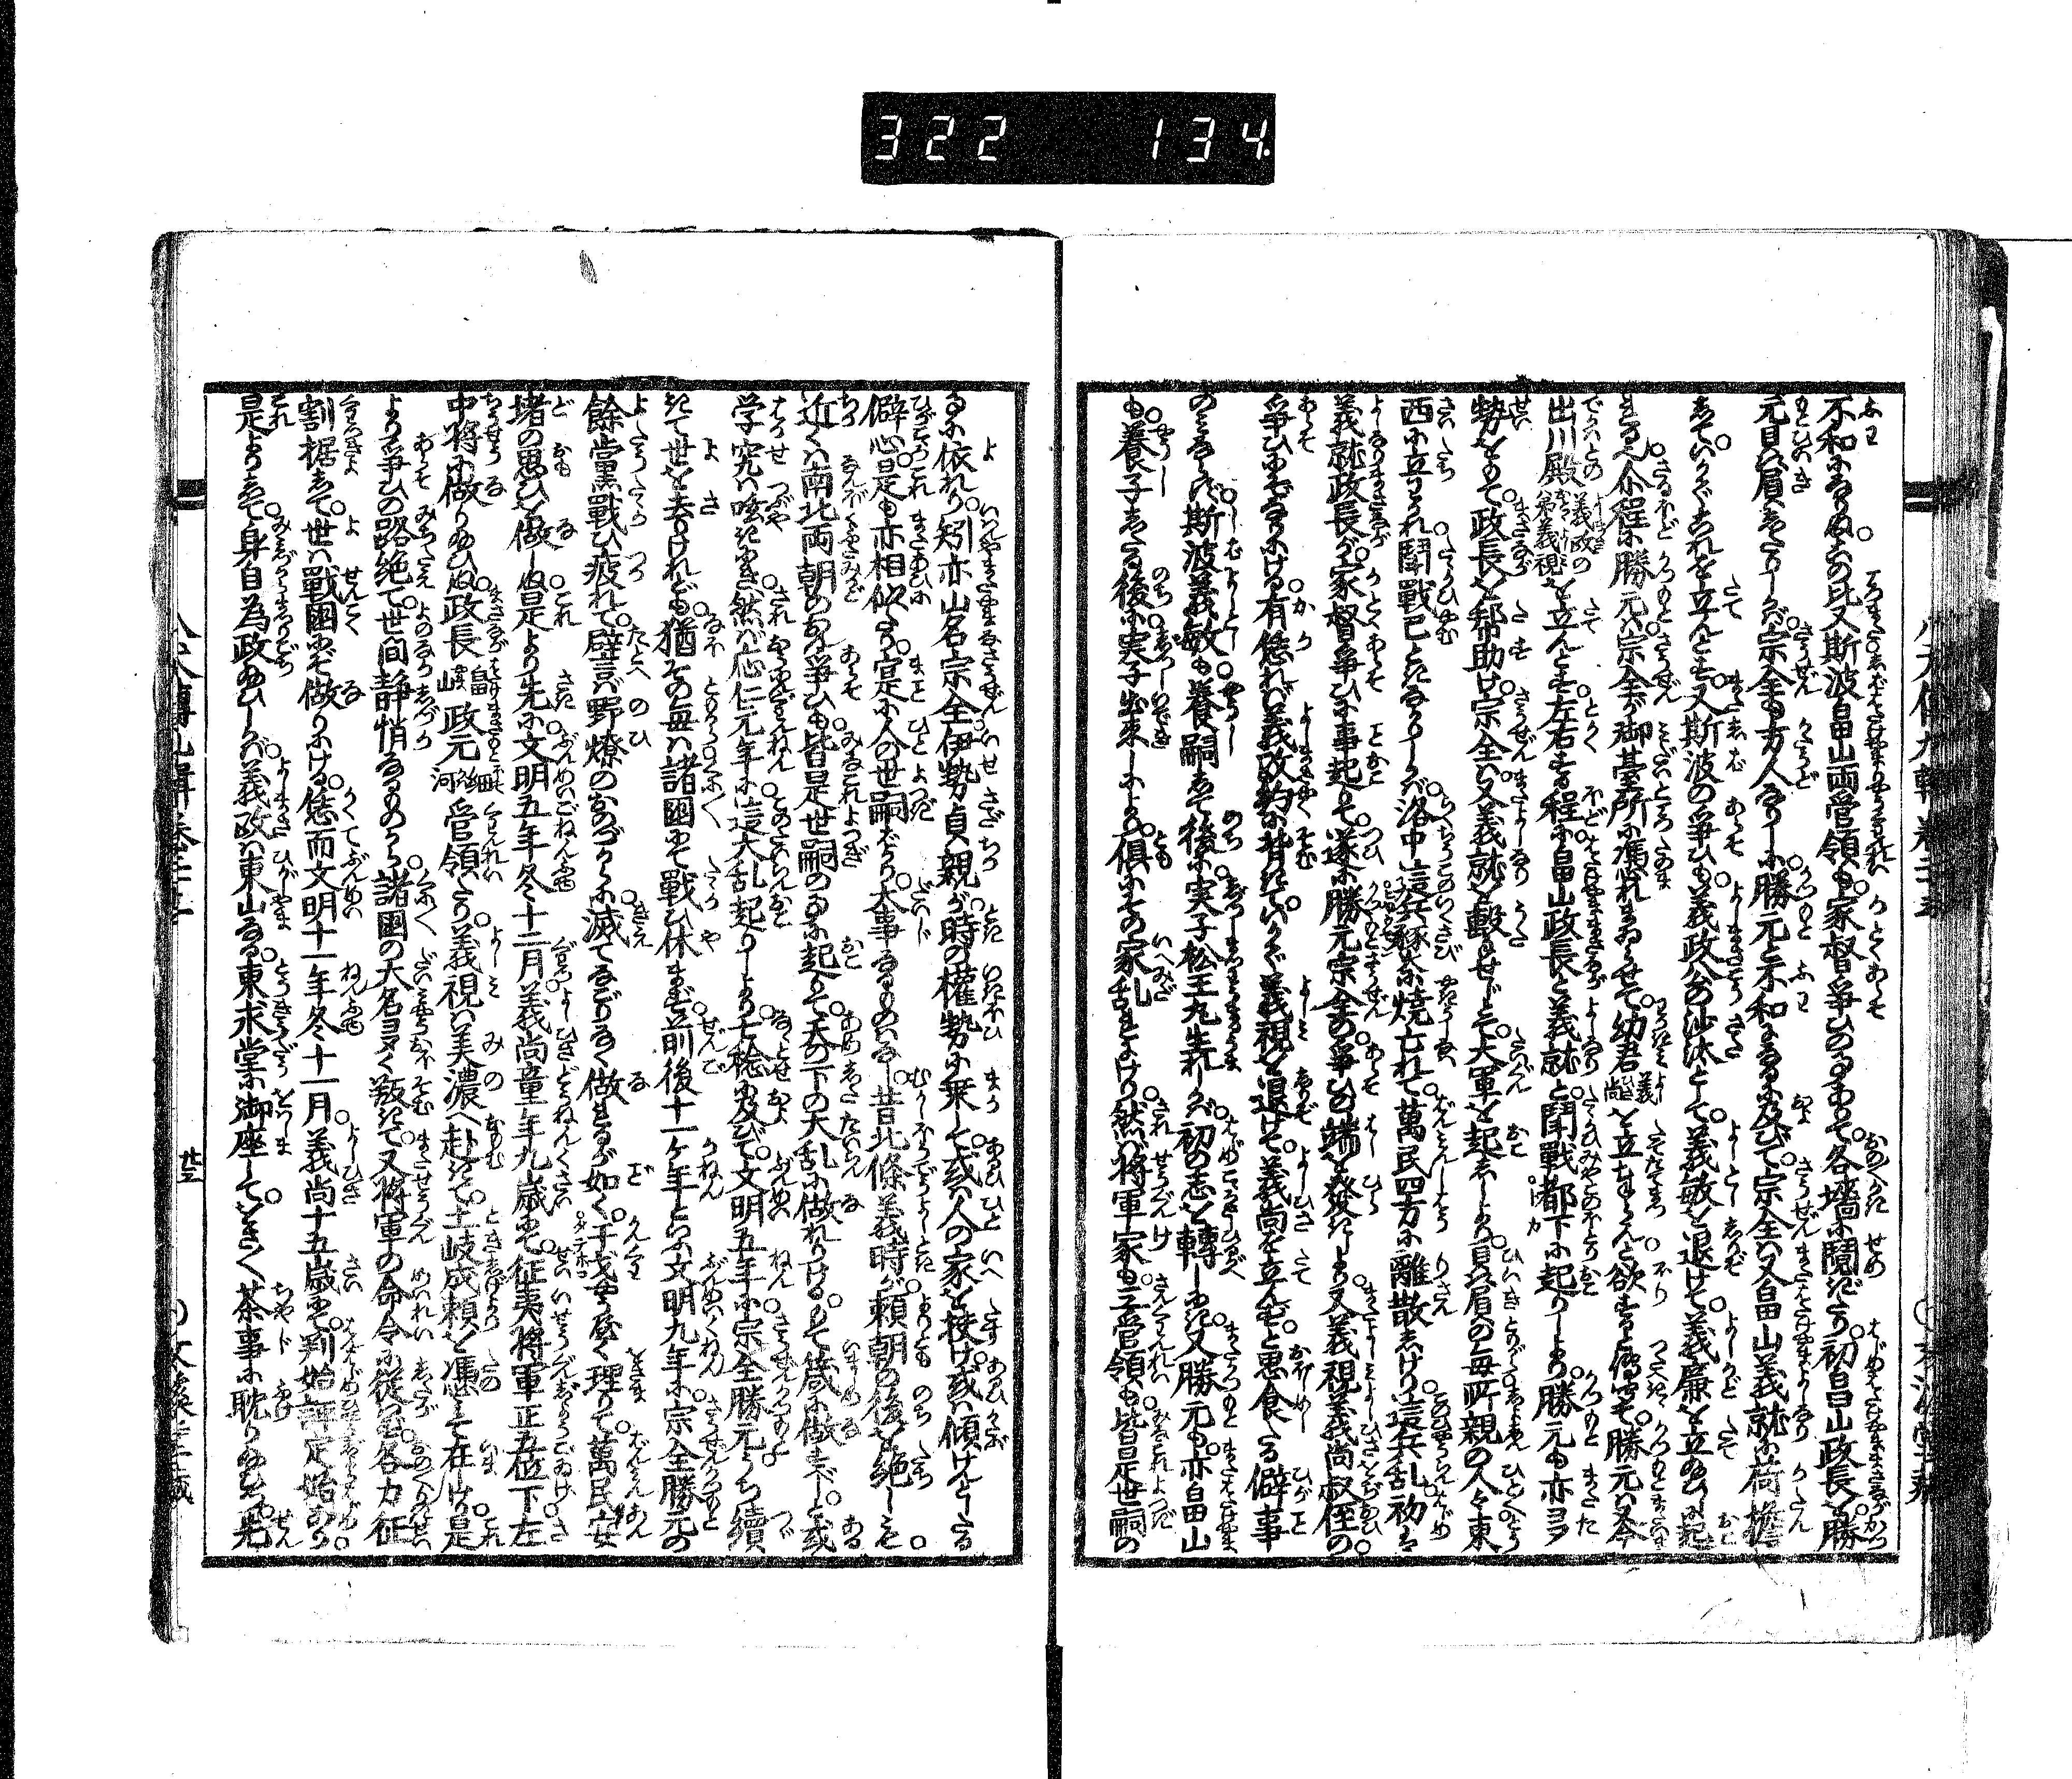 322 134
不和になりぬ。この比又斯波畠山両管領も。家督爭ひの事ありて。各墻に鬩ぎたり。初畠山政長を。勝
元贔屓したりしが。宗全も方人なりしに。勝元と不和なるに及びて。宗全は又畠山義就に荷檐
して。いかでこれを立んとす。又斯波の爭ひも。義政公の沙汰として。義敏を退けて。義廉を立給ひしに起
れる。介程に勝元は。宗全が御臺所に憑れまゐらせて。幼君義尚を立まつらんと欲すると傳聞て。勝元は今
出川殿義政の弟義視を立んとす。左右する程に。畠山政長と義就と。鬪戰都下に起りしより。勝元も亦ヨク
勢をもて。政長を幇助け。宗全は又義就を轂せんとて。大軍を起ししより。贔屓の毎所親の人々東
西に立わかれ。鬪戰已ときなかりしが。洛中這兵燹に燒亡れて。萬民四方に離散しけり。這兵乱初は
義就政長が。家督爭ひに事起りて。遂に勝元宗全の。爭ひの端を發きしより。又義視義尚叔侄の
爭ひにぞなりにける。有恁れば義政約に背きて。いかで義視を退けて。義尚を立んずと。思食たる僻事
のみならず。斯波義敏も。養嗣して後に。実子松王丸生れしが。初の志を轉しにき。又勝元も。亦畠山
も。養子したる後に。実子出來しによりて。倶にその家乱れけり。然ば將軍家も三管領も。皆是世嗣の
故に依れり。矧亦山名宗全。伊勢貞親が。時の權勢に乗して。或は人の家を挾け。或は傾けんとしたる
僻心。是も亦相似たり。寔に人の世嗣ばかり。大事なるものはなし。昔北條義時が。賴朝の後を絶しも。
近くは南北両朝のおん爭ひも。皆是世嗣の事に起りて。天の下の大乱に做れりける。もて箴に做すべしと。或
学究は呟きにき。然ば応仁元年に。這大乱起りしより。七稔に及びて。文明五年に。宗全勝元うち續
きて世を去りけれども。猶その毎は諸國にて戰ひ休まず。前後十一ヶ年といふ文明九年に。宗全勝元の
餘黨戰ひ疲れて。譬ば野燎のおのづからに。滅てなごりなく做れるが如く。干戈やうやく理りて。萬民安
堵の思ひを做しぬ。是より先に文明五年冬十二月。義尚童年九歳にて。征夷將軍正五位下左
中將に做り給ひぬ。政長畠山政元細河管領たり。義視は美濃へ赴きて。土岐成賴を憑みて在しけり。是
より爭ひの路絶て。世間靜悄なるものから。諸國の大名ヨク叛きて。又將軍の命令に從はず。各力征
割据して。世は戰國にぞ做りにける。恁而文明十一年冬十一月。義尚十五歳にて。判始評定始あり。
是よりして身自為政給ひしが。義政は東山なる。東求堂に御座して。いよいよ茶事に耽り給ひき。先